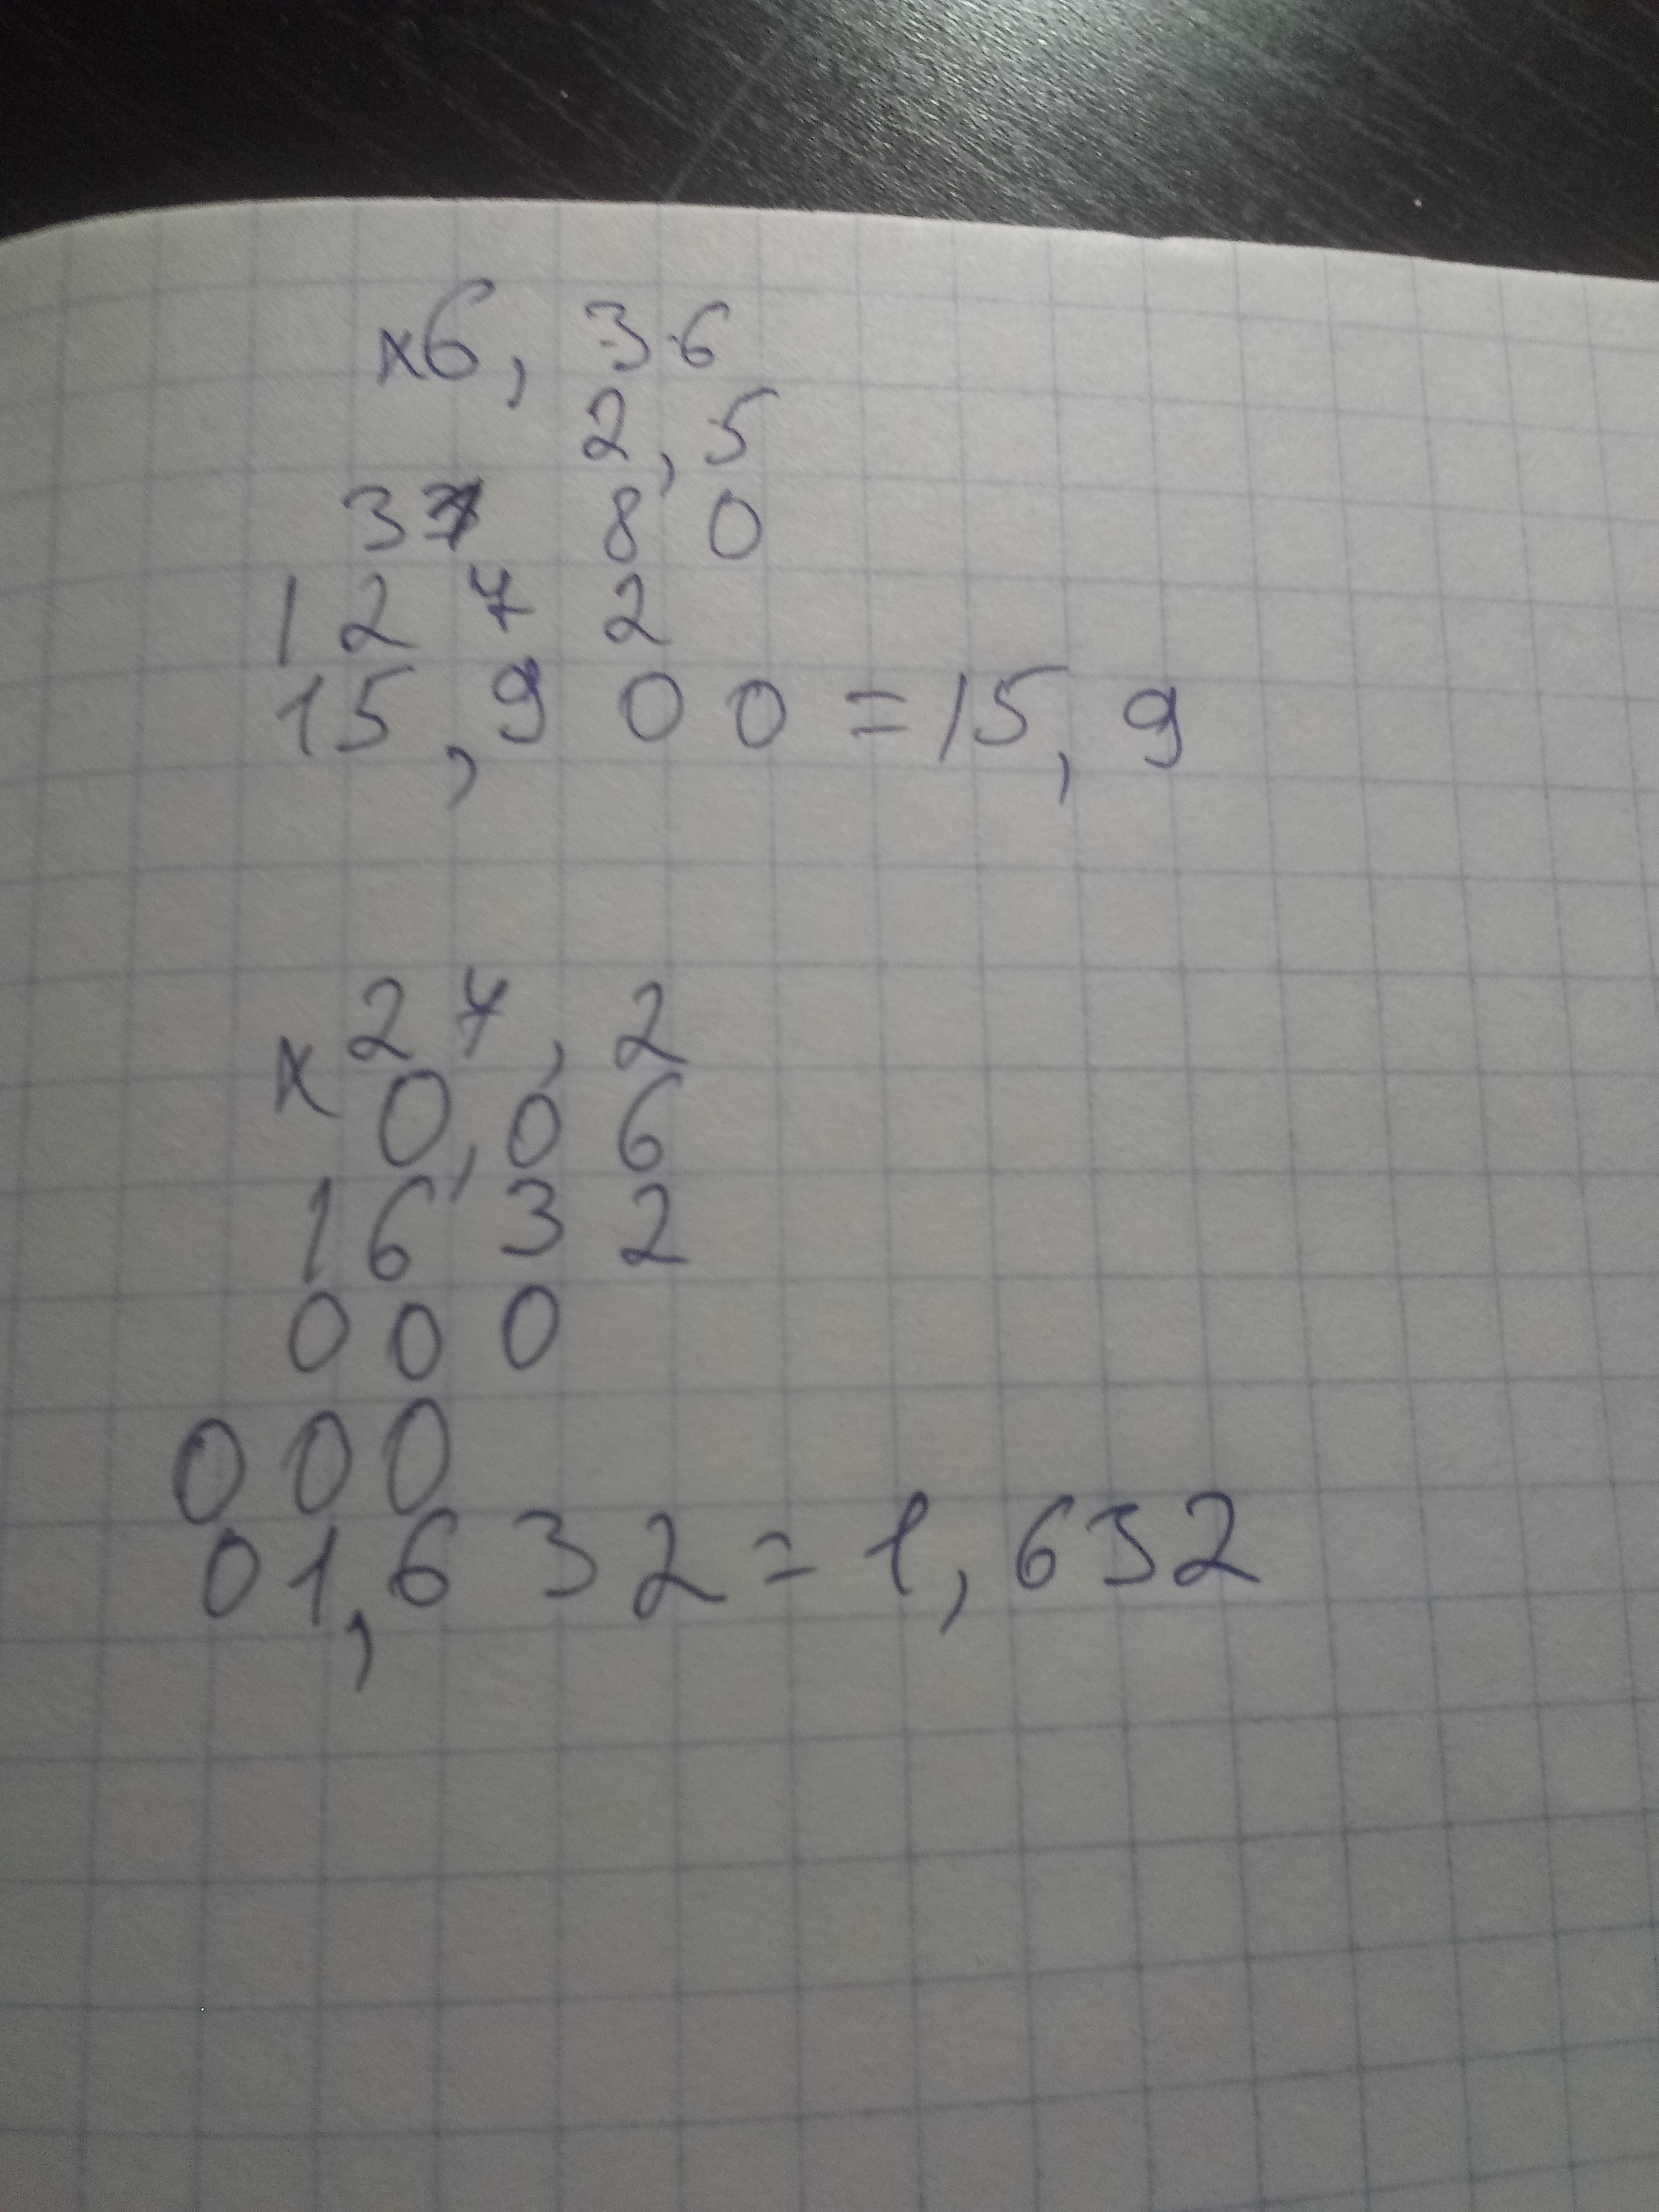 ×6,36
2,5
3 80
1272
15,900=15,9
×27,2
0,06
1632
000
000
01,632=1,632